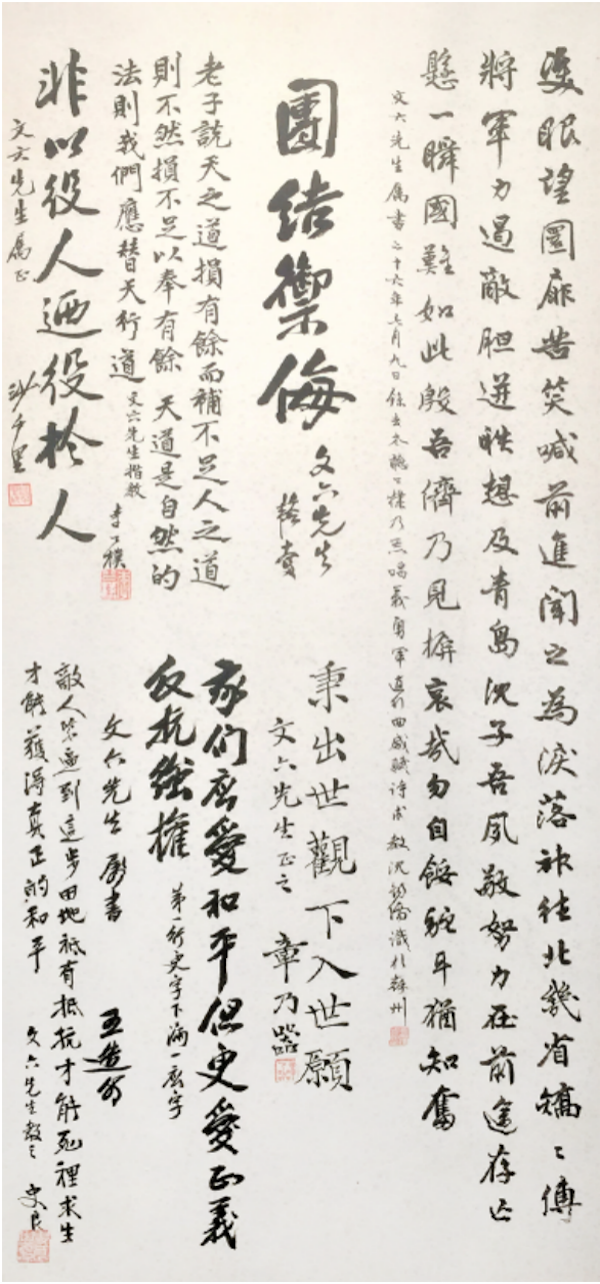 雙眼望圜扉苦笑喊前進聞之為淚落神往北幾省矯〻傅
將軍力遏敵胆迸昳想及青島沈子吾夙敬努力在前途存亡
懸一瞬國難如此殷吾儕乃見摒哀哉勿自餒駝耳猶知奮
文六先生属書二十六年七月九日 唱義勇軍進行曲感賦詩求教沈鈞儒識於蘇州
團結禦侮
文六先生
韜奮
老子說天之道損有餘而補不足人之道
則不然損不足以奉有餘 天道是自然的
法則我們應替天行道
文六先生指教
李公樸
非以役人迺役於人
文六先生属正
沙千里
秉出世觀下入世願
文六先生正之
章乃器
我们应愛和平但更愛正義
反抗強權
第一行更字下漏一应字
文六先生属書
王造时
敵人紧逼到這步田地祗有抵抗才能死裡求生
才能獲得真正的和平
文六先生教之
史良